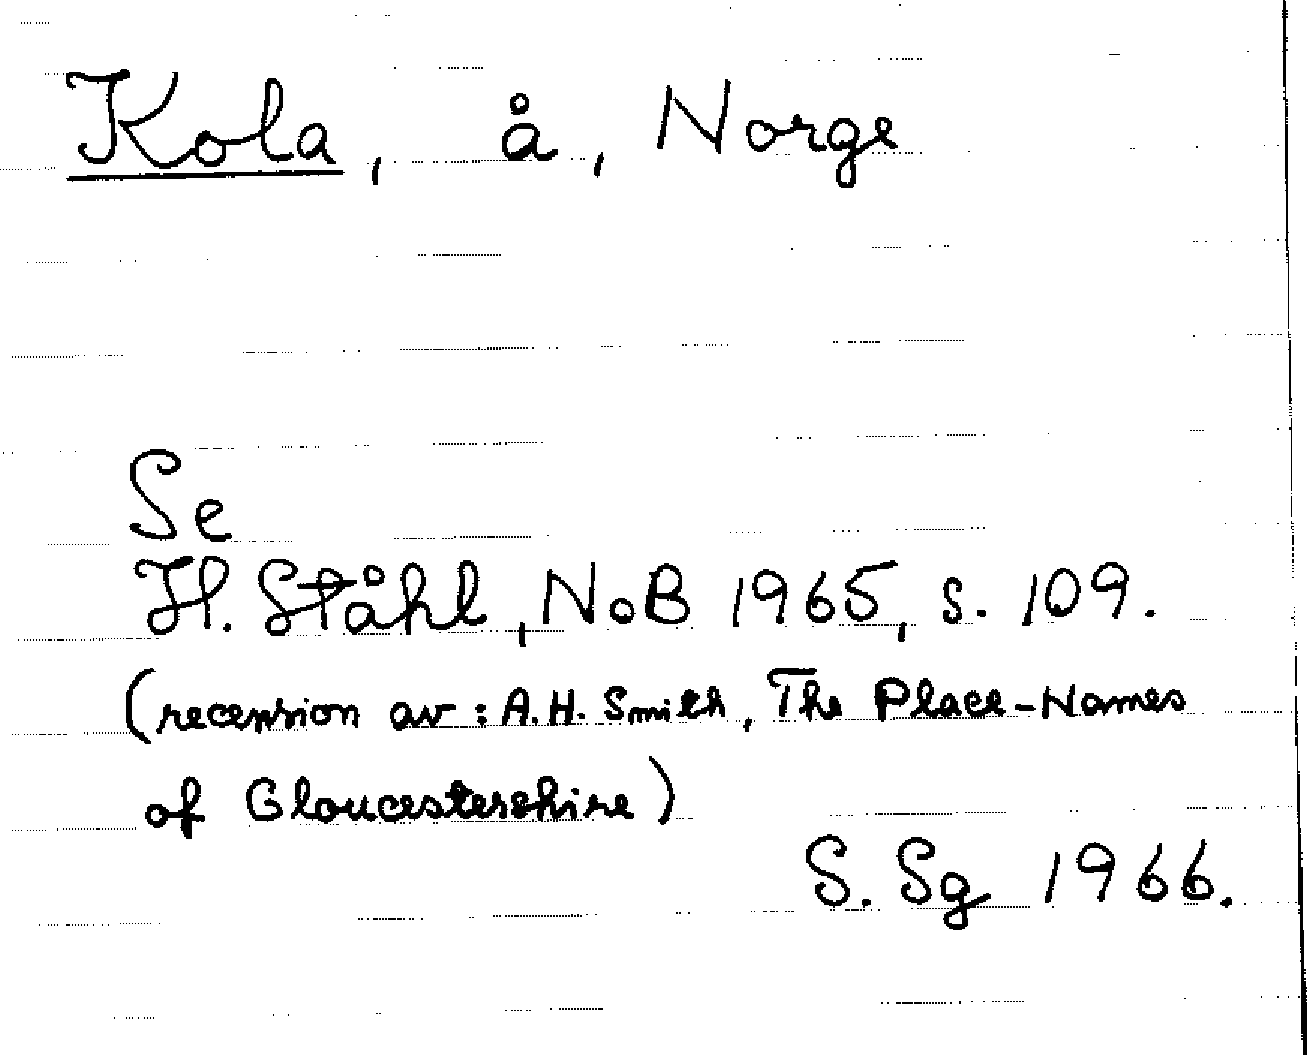 Kola, å, Norge
Se
H. Ståhl, NoB 1965, s. 109.
(recension av: A.H. Smith, The Place-Names
of Gloucestershire)
S. Sg 1966.